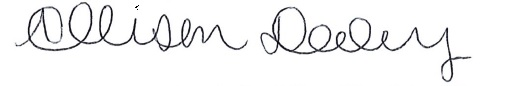 Allison Dooley